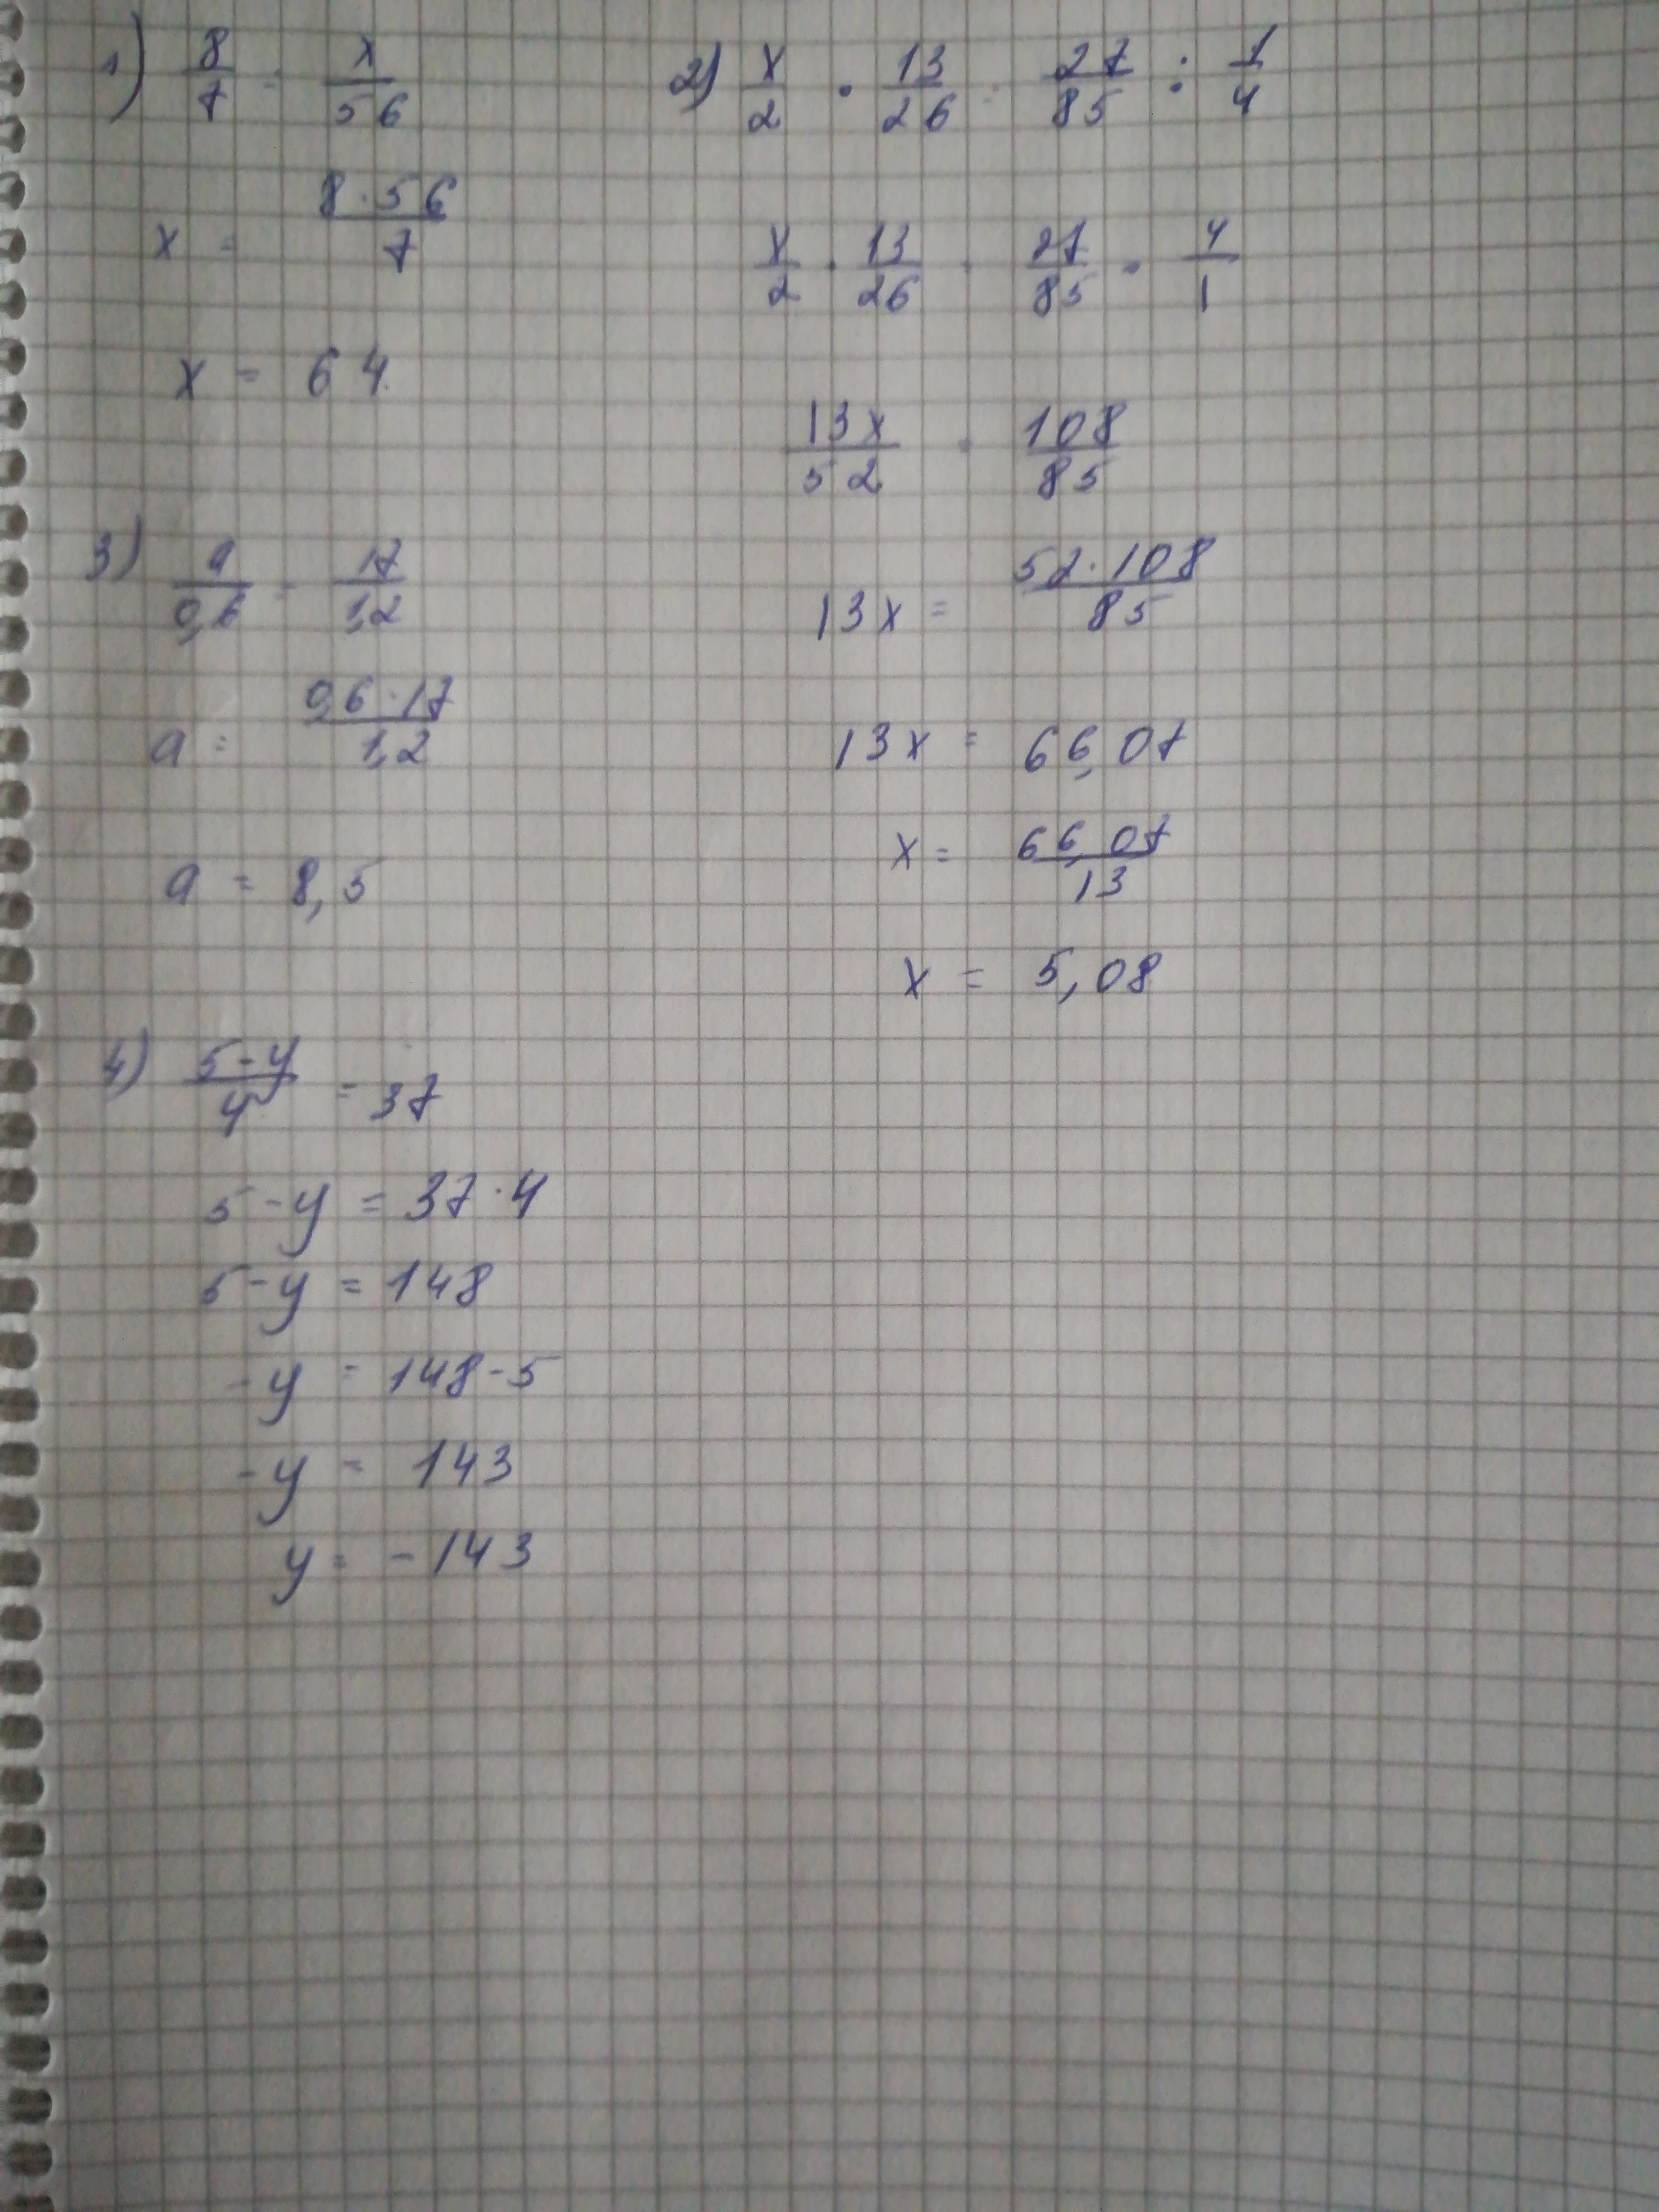 1) 8/7 = x/56
x = 8·56/7
x = 64
2) x/2 · 13/26 = 27/85 : 1/4
x/2 · 13/26 = 27/85 · 4/1
13x/52 = 108/85
13x = 52·108/85
13x = 66,07
x = 66,07/13
x = 5,08
3) a/0,6 = 17/1,2
a = 0,6·17/1,2
a = 8,5
4) 5-y/4 = 37
5-y = 37·4
5-y = 148
-y = 148-5
-y = 143
y = -143